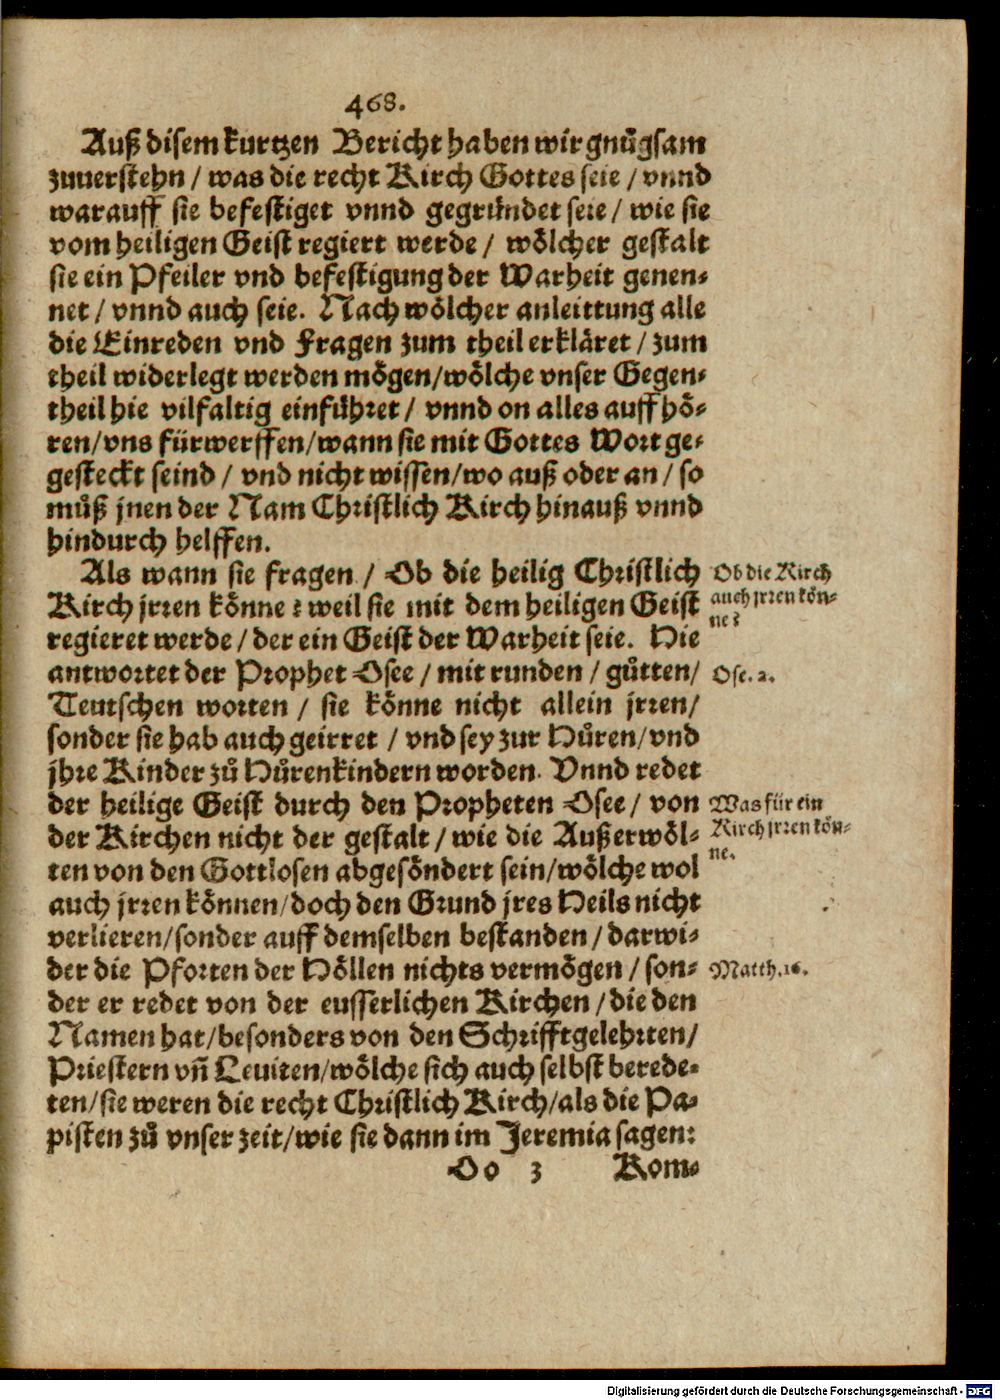 468.
Auß disem kurtzen Bericht haben wir gnůgsam
zuuerstehn / was die recht Kirch Gottes seie / vnnd
warauff sie befestiget vnnd gegründet seie / wie sie
vom heiligen Geist regiert werde / wölcher gestalt
sie ein Pfeiler vnd befestigung der Warheit genen-
net / vnnd auch seie. Nach wölcher anleittung alle
die Einreden vnd Fragen zum theil erkläret / zum
theil widerlegt werden mögen / wölche vnser Gegen-
theil hie vilfaltig einführet / vnnd on alles auffhö-
ren / vns fürwerffen / wann sie mit Gottes Wort ge-
gesteckt seind / vnd nicht wissen / wo auß oder an / so
můß jnen der Nam Christlich Kirch hinauß vnnd
hindurch helffen.
Als wann sie fragen / Ob die heilig Christlich
Kirch jrren könne? weil sie mit dem heiligen Geist
regieret werde / der ein Geist der Warheit seie. Hie
antwortet der Prophet Osee / mit runden / gůtten /
Teutschen worten / sie könne nicht allein jrren /
sonder sie hab auch geirret / vnd sey zur Hůren / vnd
jhre Kinder zů Hůrenkindern worden. Vnnd redet
der heilige Geist durch den Propheten Osee / von
der Kirchen nicht der gestalt / wie die Außerwöl-
ten von den Gottlosen abgesöndert sein / wölche wol
auch jrren können / doch den Grund jres Heils nicht
verlieren / sonder auff demselben bestanden / darwi-
der die Pforten der Höllen nichts vermögen / son-
der er redet von der eusserlichen Kirchen / die den
Namen hat / besonders von den Schrifftgelehrten /
Priestern vñ Leuiten / wölche sich auch selbst berede-
ten / sie weren die recht Christlich Kirch / als die Pa-
pisten zů vnser zeit / wie sie dann im Jeremia sagen:
Oo 3 Kom-
Ob die Kirch
auch jrren kön-
ne?
Ose. 2.
Was für ein
Kirch jrren kön-
ne.
Matth. 16.
Digitalisierung gefördert durch die Deutsche Forschungsgemeinschaft - DFG